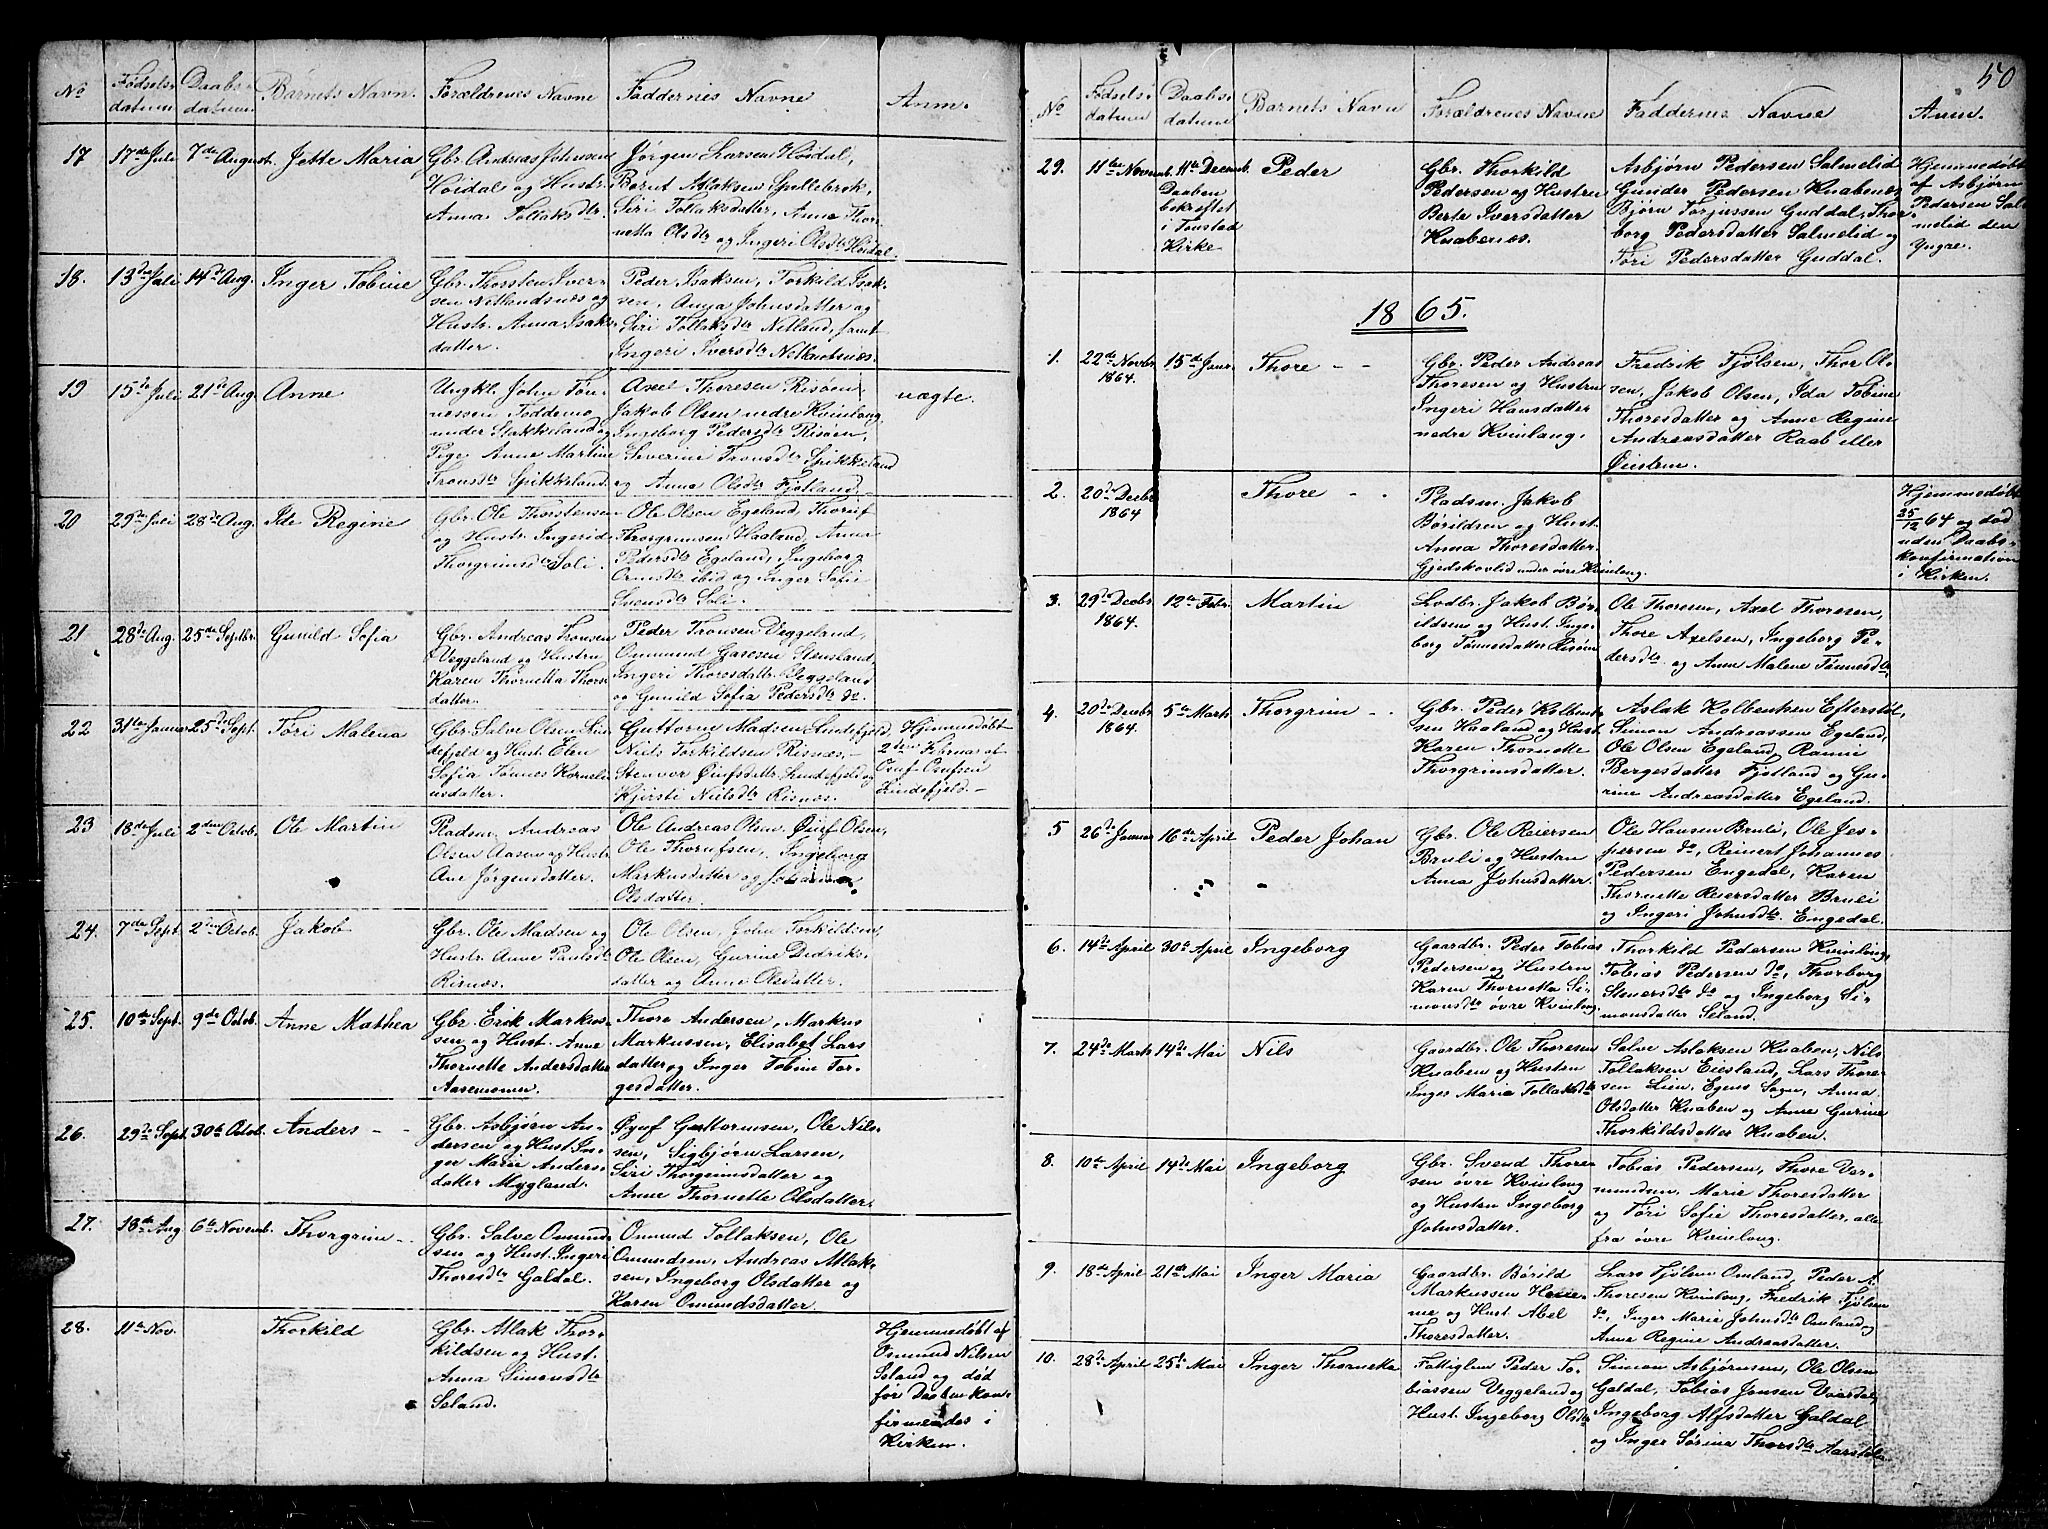 No Fødsels- datum Daabs- datum Barnets Navn. Forældrenes Navne Faddernes Navne Anm.
17 17de Juli 7de August. Jotte Maria
Gbr. Andreas Johnsen
Høidal og Hustr.
Anna Tollaksdtr.
Jörgen Larsen Höidal,
Bernt Aslaksen Spillebrok,
Siri Tollaksdatter, Anna Thor-
netta Olsdtr og Ingeri Olsdtr Höidal.
18. 13de Juli 14de Aug. Inger Tobine
Gbr. Thorsten Iver-
sen Netlandsnæs og
Hustr. Anna Isaks-
datter.
Peder Isaksen, Torkild Isak-
sen, Anna Johnsdatter og
Siri Tollaksdtr Netland, samt
Ingeri Iversdtr Netlandsnæs.
19 15de Juli 21de Aug. Anne
Ungkl. John Tön-
nessen Töddemo
under Stakkeland og
Pige Anne Martine
Tronsdtr Spikkeland.
Axel Thoresen Risöen,
Jakob Olsen nedre Kvinlaug,
Ingeborg Pedersdtr Risöen,
Severine Tronsdtr Spikkeland
og Anna Olsdtr Fjotland.
uægte.
20 29de Juli 28de Aug. Ide Regine
Gbr. Ole Thorstensen
og Hustr. Ingerid
Thorgrimsdtr Soli.
Ole Olsen Egeland, Thorüf
Throgrimsen Haaland, Anna
Pedersdtr Egeland, Ingeborg
Ormsdtr ibid og Inger Sofie
Svensdtr Soli.
21 28de Aug. 25de Septbr. Gunild Sofia
Gbr. Andreas Tronsen
Veggeland og Hustru
Karen Thornetta Thors-
datter.
Peder Tronsen Veggeland,
Ommund Garesen Stensland,
Ingeri Thoresdatter Veggeland
og Gunild Sofia Pedersdtr do.
22 31te Januar 25de Sept. Töri Malena
Gbr. Salve Olsen Lin-
defjeld og Hust. Elen
Sofia Tönnes Korneli-
usdatter.
Guttorm Madsen Lindefjeld,
Niels Torkildsen Risnæs,
Stenvor Öiufsdattr. Lindefjeld og
Kjirsti Nielsdtr Risnæs.
Hjemmedøbt
2den Febrna af
Osuf Osufsen
Lindefjeld.
23 18de Juli 2den Octob. Ole Martin
Pladsm. Andreas
Olsen Aasen og Hustr.
Ane Jørgensdatter.
Ole Andreas Olsen, Öiuf Olsen,
Ole Thorufsen, Ingeborg
Markusdatter og Johanna
Olsdatter.
24. 7de Sept. 2den Octob. Jakob
Gbr. Ole Madsen og
Hustr. Anne Paulsdtr
Risnæs.
Ole Olsen, John Torkildsen,
Ole Olsen, Gurine Didriks-
datter og Anne Olsdatter.
25. 10de Sept. 9de Octob. Anne Mathea
Gbr. Erik Markus-
sen og Hust. Anne
Thornette Andersdatter
Aasemoen.
Thore Andersen, Markus
Markussen, Elisabet Lars-
datter og Inger Tobine Tor-
gesdatter.
26. 29de Sept. 30te Octob. Anders
Gbr. Asbjørn An-
dersen og Hust In-
ger Marie Anders-
datter Mygland.
Öyuf Guttormsen, Ole Nils-
sen, Sigbjørn Larsen,
Siri Thorgrimsdatter og
Anne Thornette Olsdatter.
27. 18de Aug 6te Novemb. Thorgrim
Gbr. Salve Omund-
sen og Hust. Ingeri
Thoresdtr Galdal.
Omund Tollaksen, Ole
Omundsen, Andreas Atlak-
sen, Ingeborg Olsdatter og
Karen Omundsdatter.
28. 11te Nov. Thorkild
Gbr. Atlak Thor-
kildsen og Hust.
Anna Simonsdtr
Seland.
Hjemmedøbt af
Osmund Nilsen
Seland og død
før Daaben kon-
firmeredes i
Kirken.
50
No Fødsels- datum Daabs- datum Barnets Navn Forældrenes Navne Faddernes Navne Anm.
29. 11te Novemb. 11te Decemb. Peder
Daaben
bekræftet
i Tonstad
Kirke
Gbr. Thorkild
Pedersen og Hustru
Berte Iversdatter
Knabenæs.
Asbjørn Pedersen Salmelid
Gunder Pedersen Knabenæs
Bjørn Torjussen Guddal, Thor-
borg Pedersdatter Salmelid og
Töri Pedersdatter Guddal.
Hjemmedøbt
af Asbjørn
Pedersen Sal-
melid den
Yngre.
1865.
1. 22de Novbr. 1864. 15de Janr. Thore
Gbr. Peder Andreas
Thoresen og Hustru
Ingeri Hansdatter
nedre Kvinlaug.
Fredrik Fjölsen, Thor Ol-
sen, Jakob Olsen, Ida Tobine
Thoresdatter og Anne Regine
Andreasdatter Raab eller
Øiestem.
2. 20de Decbr 1864 Thore
Pladsm. Jakob
Börildsen og Hust.
Anna Thoresdatter.
Gjedskovlid under øvre Kvinlaug.
Hjemmedøbt
25/12 64 og død
uden Daabs-
konfirmation
i Kirken.
3. 29de Decbr. 1864. 12te Febr. Martin
Lodbr. Jakob Bør-
ildsen og Hust. Inge-
borg Tönnesdatter Risöen
Ole Thoresen, Axel Thoresen,
Thore Axelsen, Ingeborg Pe-
dersdtr og Anne Malene Tönnesdtr
4. 20de Decbr. 1864. 5te Marts Thorgrim
Gbr. Peder Kolbent-
sen Haaland og Hust.
Karen Thornette
Thorgrimsdatter.
Aslak Kolbentsen Efterstöl,
Simon Andreassen Egeland,
Ole Olsen Egeland, Rannei
Bergesdatter Fjotland og Gu-
rine Andreasdatter Egeland.
5 26de Januar 16de April Peder Johan
Gbr. Ole Reiersen
Bruli og Hustru
Anna Johnsdatter.
Ole Hansen Bruli, Ole Jes-
persen do, Reinert Johannes
Pedersen Engedal, Karen
Thornette Reiersdatter Bruli
og Ingeri Johnsdtr. Engedal.
6. 14de April 30te April Ingeborg
Gaardbr. Peder Tobias
Pedersen og Hustru
Karen Thornetta Si-
monsdtr øvre Kvinlaug
Thorkild Pedersen Kvinlaug,
Tobias Pedersen do, Thorborg
Stenersdtr do og Ingeborg Si-
monsdatter Seland.
7. 24de Marts 14de Mai Nils
Gaardbr. Ole Thoresen
Knaben og Hustru
Inger Maria Tollaksdtr
Salve Aslaksen Knaben, Nils
Tollaksen Eiesland, Lars Thore-
sen Lien, Egens Sogn, Anna
Olsdatter Knaben og Anne Gurine
Thorkildsdatter Knaben.
8. 10de April 14de Mai Ingeborg
Gbr. Svend Thore-
sen øvre Kvinlaug
og Hustru Ingeborg
Johnsdatter.
Tobias Pedersen, Thore Ver-
mundsen, Marie Thoresdatter
og Töri Sofie Thoresdatter, alle
fra øvre Kvinlaug.
9. 18de April 21de Mai Inger Maria
Gaardbr. Börild
Markussen Heie-
me og Hust Abel
Thoresdatter.
Lars Fjölsen Omland, Peder A.
Thoresen Kvinlaug, Fredrik Fjölsen
do, Inger Marie Johnsdtr Omland og
Anne Regine Andreasdatter.
10. 28de April 25de Mai Inger Thornetta
Fattiglem Peder To-
biassen Veggeland og
Hust. Ingeborg Olsdtr
Simon Asbjørnsen, Ole Olsen
Galdal, Tobias Jonsen Vaardal,
Ingeborg Alfsdatter Galdal
og Inger Sørine Thorsdtr Aarstöl.